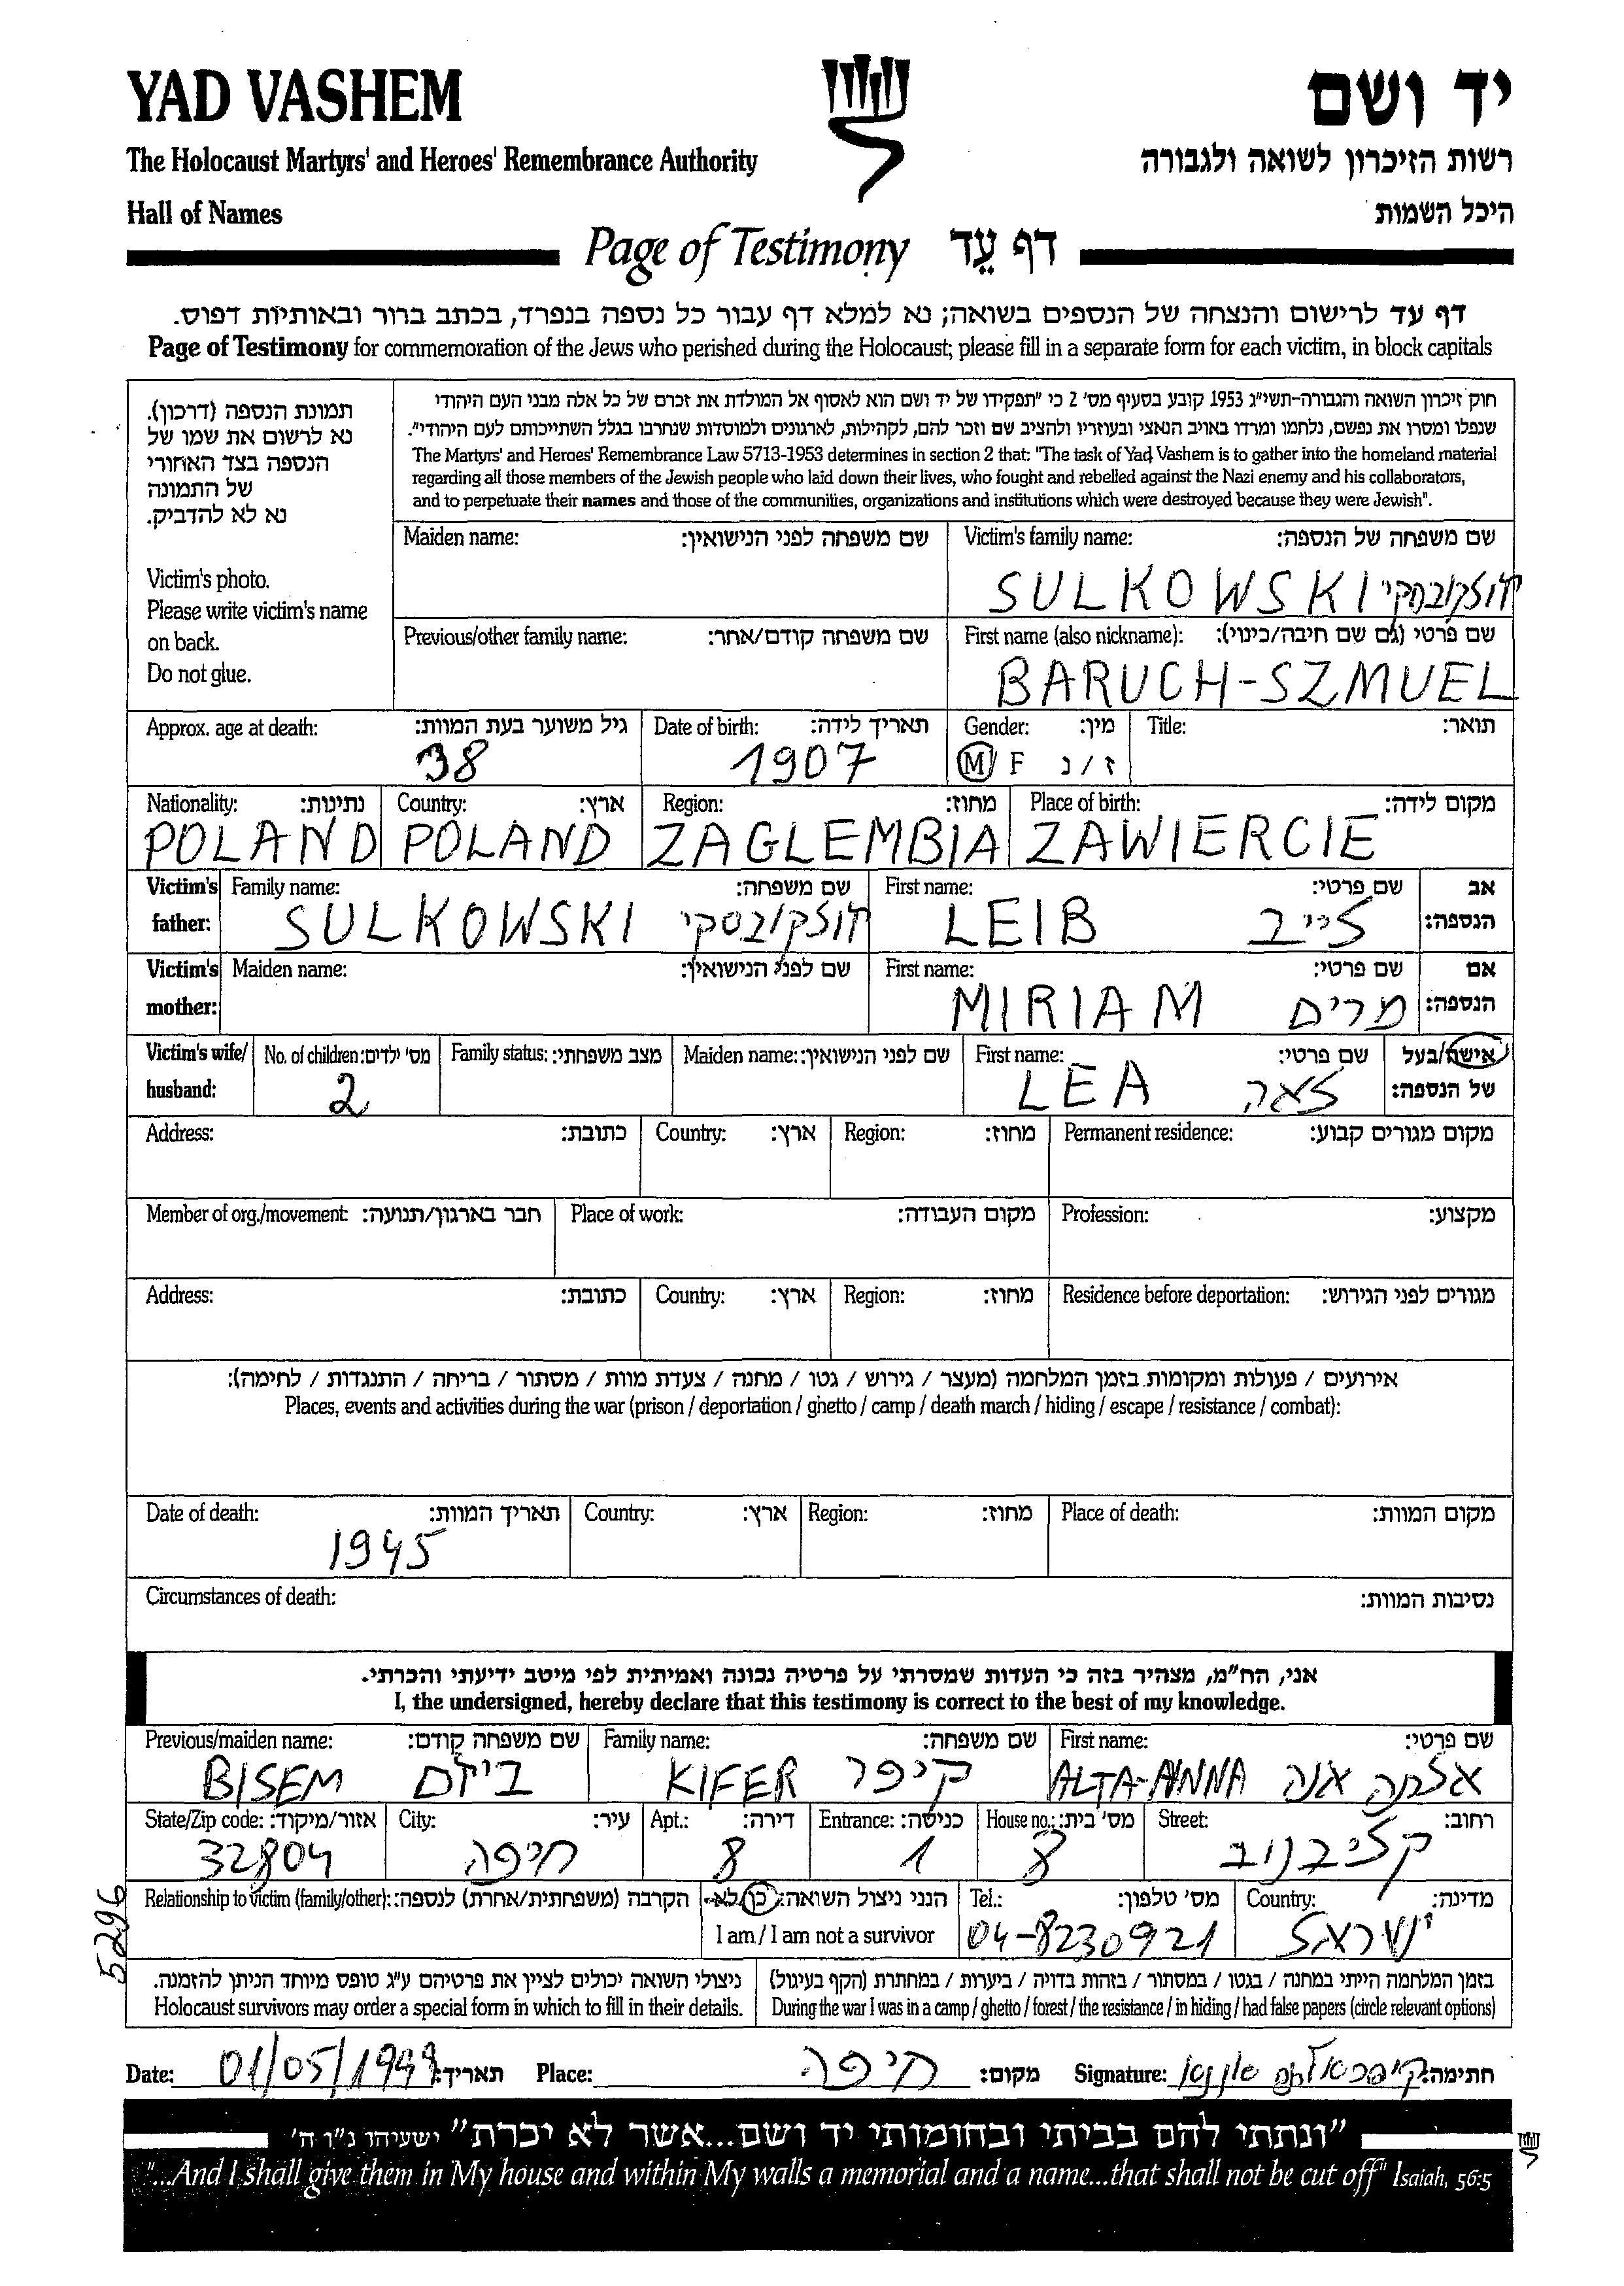 YAD VASHEM יד ושם
The Holocaust Martyrs' and Heroes' Remembrance Authority רשות הזיכרון לשואה ולגבורה
Hall of Names היכל השמות
Page of Testimony דף עֵד
דף עד לרישום והנצחה של הנספים בשואה; נא למלא דף עבור כל נספה בנפרד, בכתב ברור ובאותיות דפוס.
Page of Testimony for commemoration of the Jews who perished during the Holocaust; please fill in a separate form for each victim, in block capitals
תמונת הנספה (דרכון).
נא לרשום את שמו של
הנספה בצד האחורי
של התמונה
נא לא להדביק.
Victim's photo.
Please write victim's name
on back.
Do not glue.
חוק זיכרון השואה והגבורה-תשי"ג 1953 קובע בסעיף מס' 2 כי "תפקידו של יד ושם הוא לאסוף אל המולדת את זכרם של כל אלה מבני העם היהודי
שנפלו ומסרו את נפשם, נלחמו ומרדו באויב הנאצי ובעוזריו ולהציב שם וזכר להם, לקהילות, לארגונים ולמוסדות שנחרבו בגלל השתייכותם לעם היהודי".
The Martyrs' and Heroes' Remembrance Law 5713-1953 determines in section 2 that: "The task of Yad Vashem is to gather into the homeland material
regarding all those members of the Jewish people who laid down their lives, who fought and rebelled against the Nazi enemy and his collaborators,
and to perpetuate their names and those of the communities, organizations and institutions which were destroyed because they were Jewish".
Maiden name: שם משפחה לפני הנישואין: Victim's family name: שם משפחה של הנספה:
SULKOWSKI סולקובסקי
Previous/other family name: שם משפחה קודם/אחר: First name (also nickname): שם פרטי (גם שם חיבה/כינוי):
BARUCH-SZMUEL
Approx. age at death: גיל משוער בעת המוות: Date of birth: תאריך לידה: Gender: מין: Title: תואר:
38 1907 M/ F ז / נ
Nationality: נתינות: Country: ארץ: Region: מחוז: Place of birth: מקום לידה:
POLAND POLAND ZAGLEMBIA ZAWIERCIE
Victim's father: Family name: שם משפחה: First name: שם פרטי: אב הנספה:
SULKOWSKI סולקובסקי LEIB לייב
Victim's mother: Maiden name: שם לפני הנישואין: First name: שם פרטי: אם הנספה:
MIRIAM מרים
Victim's wife/ husband: No. of children: מס' ילדים: Family status: מצב משפחתי: Maiden name: שם לפני הנישואין: First name: שם פרטי: אישה/בעל של הנספה:
2 LEA לאה
Address: כתובת: Country: ארץ: Region: מחוז: Permanent residence: מקום מגורים קבוע:
Member of org./movement: חבר בארגון/תנועה: Place of work: מקום העבודה: Profession: מקצוע:
Address: כתובת: Country: ארץ: Region: מחוז: Residence before deportation: מגורים לפני הגירוש:
אירועים / פעולות ומקומות בזמן המלחמה (מעצר / גירוש / גטו / מחנה / צעדת מוות / מסתור / בריחה / התנגדות / לחימה):
Places, events and activities during the war (prison / deportation / ghetto / camp / death march / hiding / escape / resistance / combat):
Date of death: תאריך המוות: Country: ארץ: Region: מחוז: Place of death: מקום המוות:
1945
Circumstances of death: נסיבות המוות:
אני, הח"מ, מצהיר בזה כי העדות שמסרתי על פרטיה נכונה ואמיתית לפי מיטב ידיעתי והכרתי.
I, the undersigned, hereby declare that this testimony is correct to the best of my knowledge.
Previous/maiden name: שם משפחה קודם: Family name: שם משפחה: First name: שם פרטי:
BISEM ביזם KIFER קיפר ALTA-ANNA אלתה אנה
State/Zip code: אזור/מיקוד: City: עיר: Apt.: דירה: Entrance: כניסה: House no.: מס' בית: Street: רחוב:
32804 חיפה 8 1 8 קליבנוב
Relationship to victim (family/other): הקרבה (משפחתית/אחרת) לנספה: הנני ניצול השואה: כן/לא Tel.: מס' טלפון: Country: מדינה:
I am / I am not a survivor 04-8230921 ישראל
5296
ניצולי השואה יכולים לציין את פרטיהם ע"ג טופס מיוחד הניתן להזמנה. בזמן המלחמה הייתי במחנה / בגטו / במסתור / בזהות בדויה / ביערות / במחתרת (הקף בעיגול)
Holocaust survivors may order a special form in which to fill in their details. During the war I was in a camp / ghetto / forest / the resistance / in hiding / had false papers (circle relevant options)
Date: 01/05/1999 תאריך: Place: חיפה מקום: Signature: חתימה:
"ונתתי להם בביתי ובחומותי יד ושם...אשר לא יכרת" ישעיהו נ"ו ה'
"...And I shall give them in My house and within My walls a memorial and a name...that shall not be cut off" Isaiah, 56:5